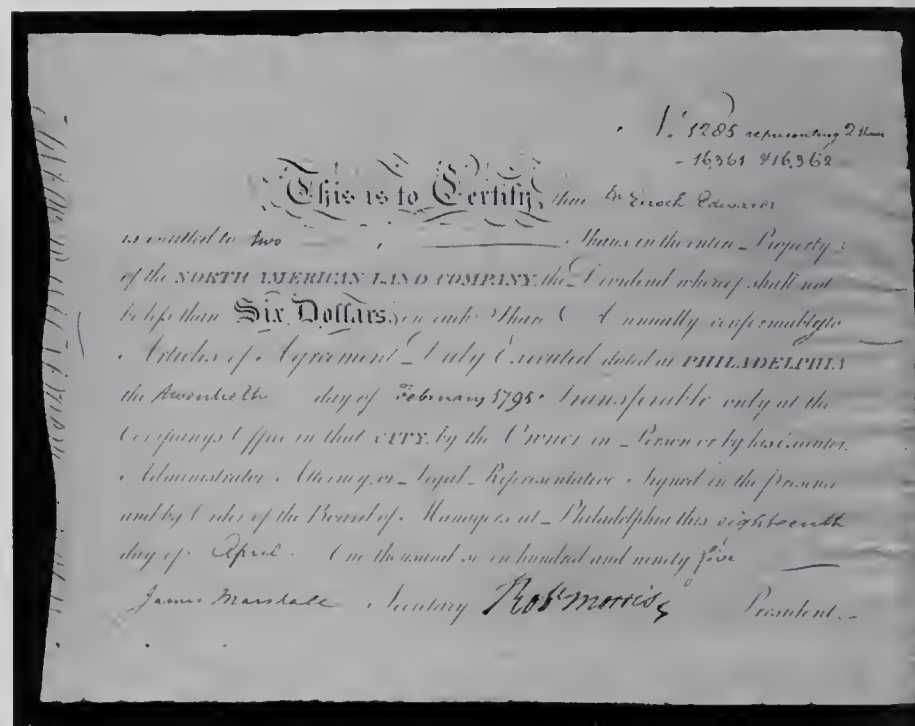 No. 1285 representing 2 shares
- 16361 & 16362
This is to Certify, that Dr. Enoch Edwards
is entitled to two Shares in the entire Property
of the NORTH AMERICAN LAND COMPANY, the Dividend whereof shall not
be less than Six Dollars on each Share Annually conformably to
Articles of Agreement Duly Executed dated at PHILADELPHIA
the twentieth day of February 1795. Transferable only at the
Companys Office in that CITY, by the Owner in Person or by his Executor,
Administrator Attorney, or Legal Representative Signed in the presence
and by Order of the Board of Managers at Philadelphia this eighteenth
day of April. One thousand seven hundred and ninety five
James Marshall Secretary Robt Morris President.